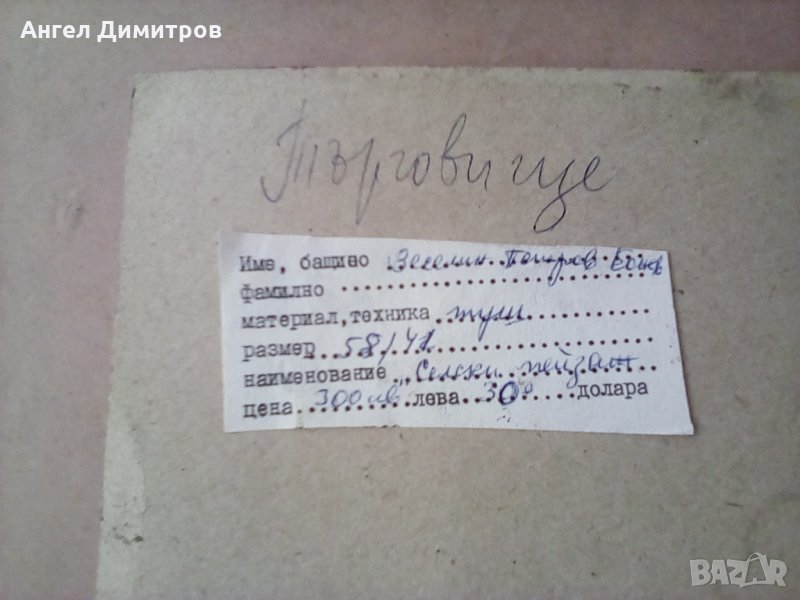 Ангел Димитров
Търговище
Име, бащино Веселин
фамилно
материал, техника туш
размер 58/41
наименование "Селски пейзаж
цена 300 лв лева 30 долара
BAZAR